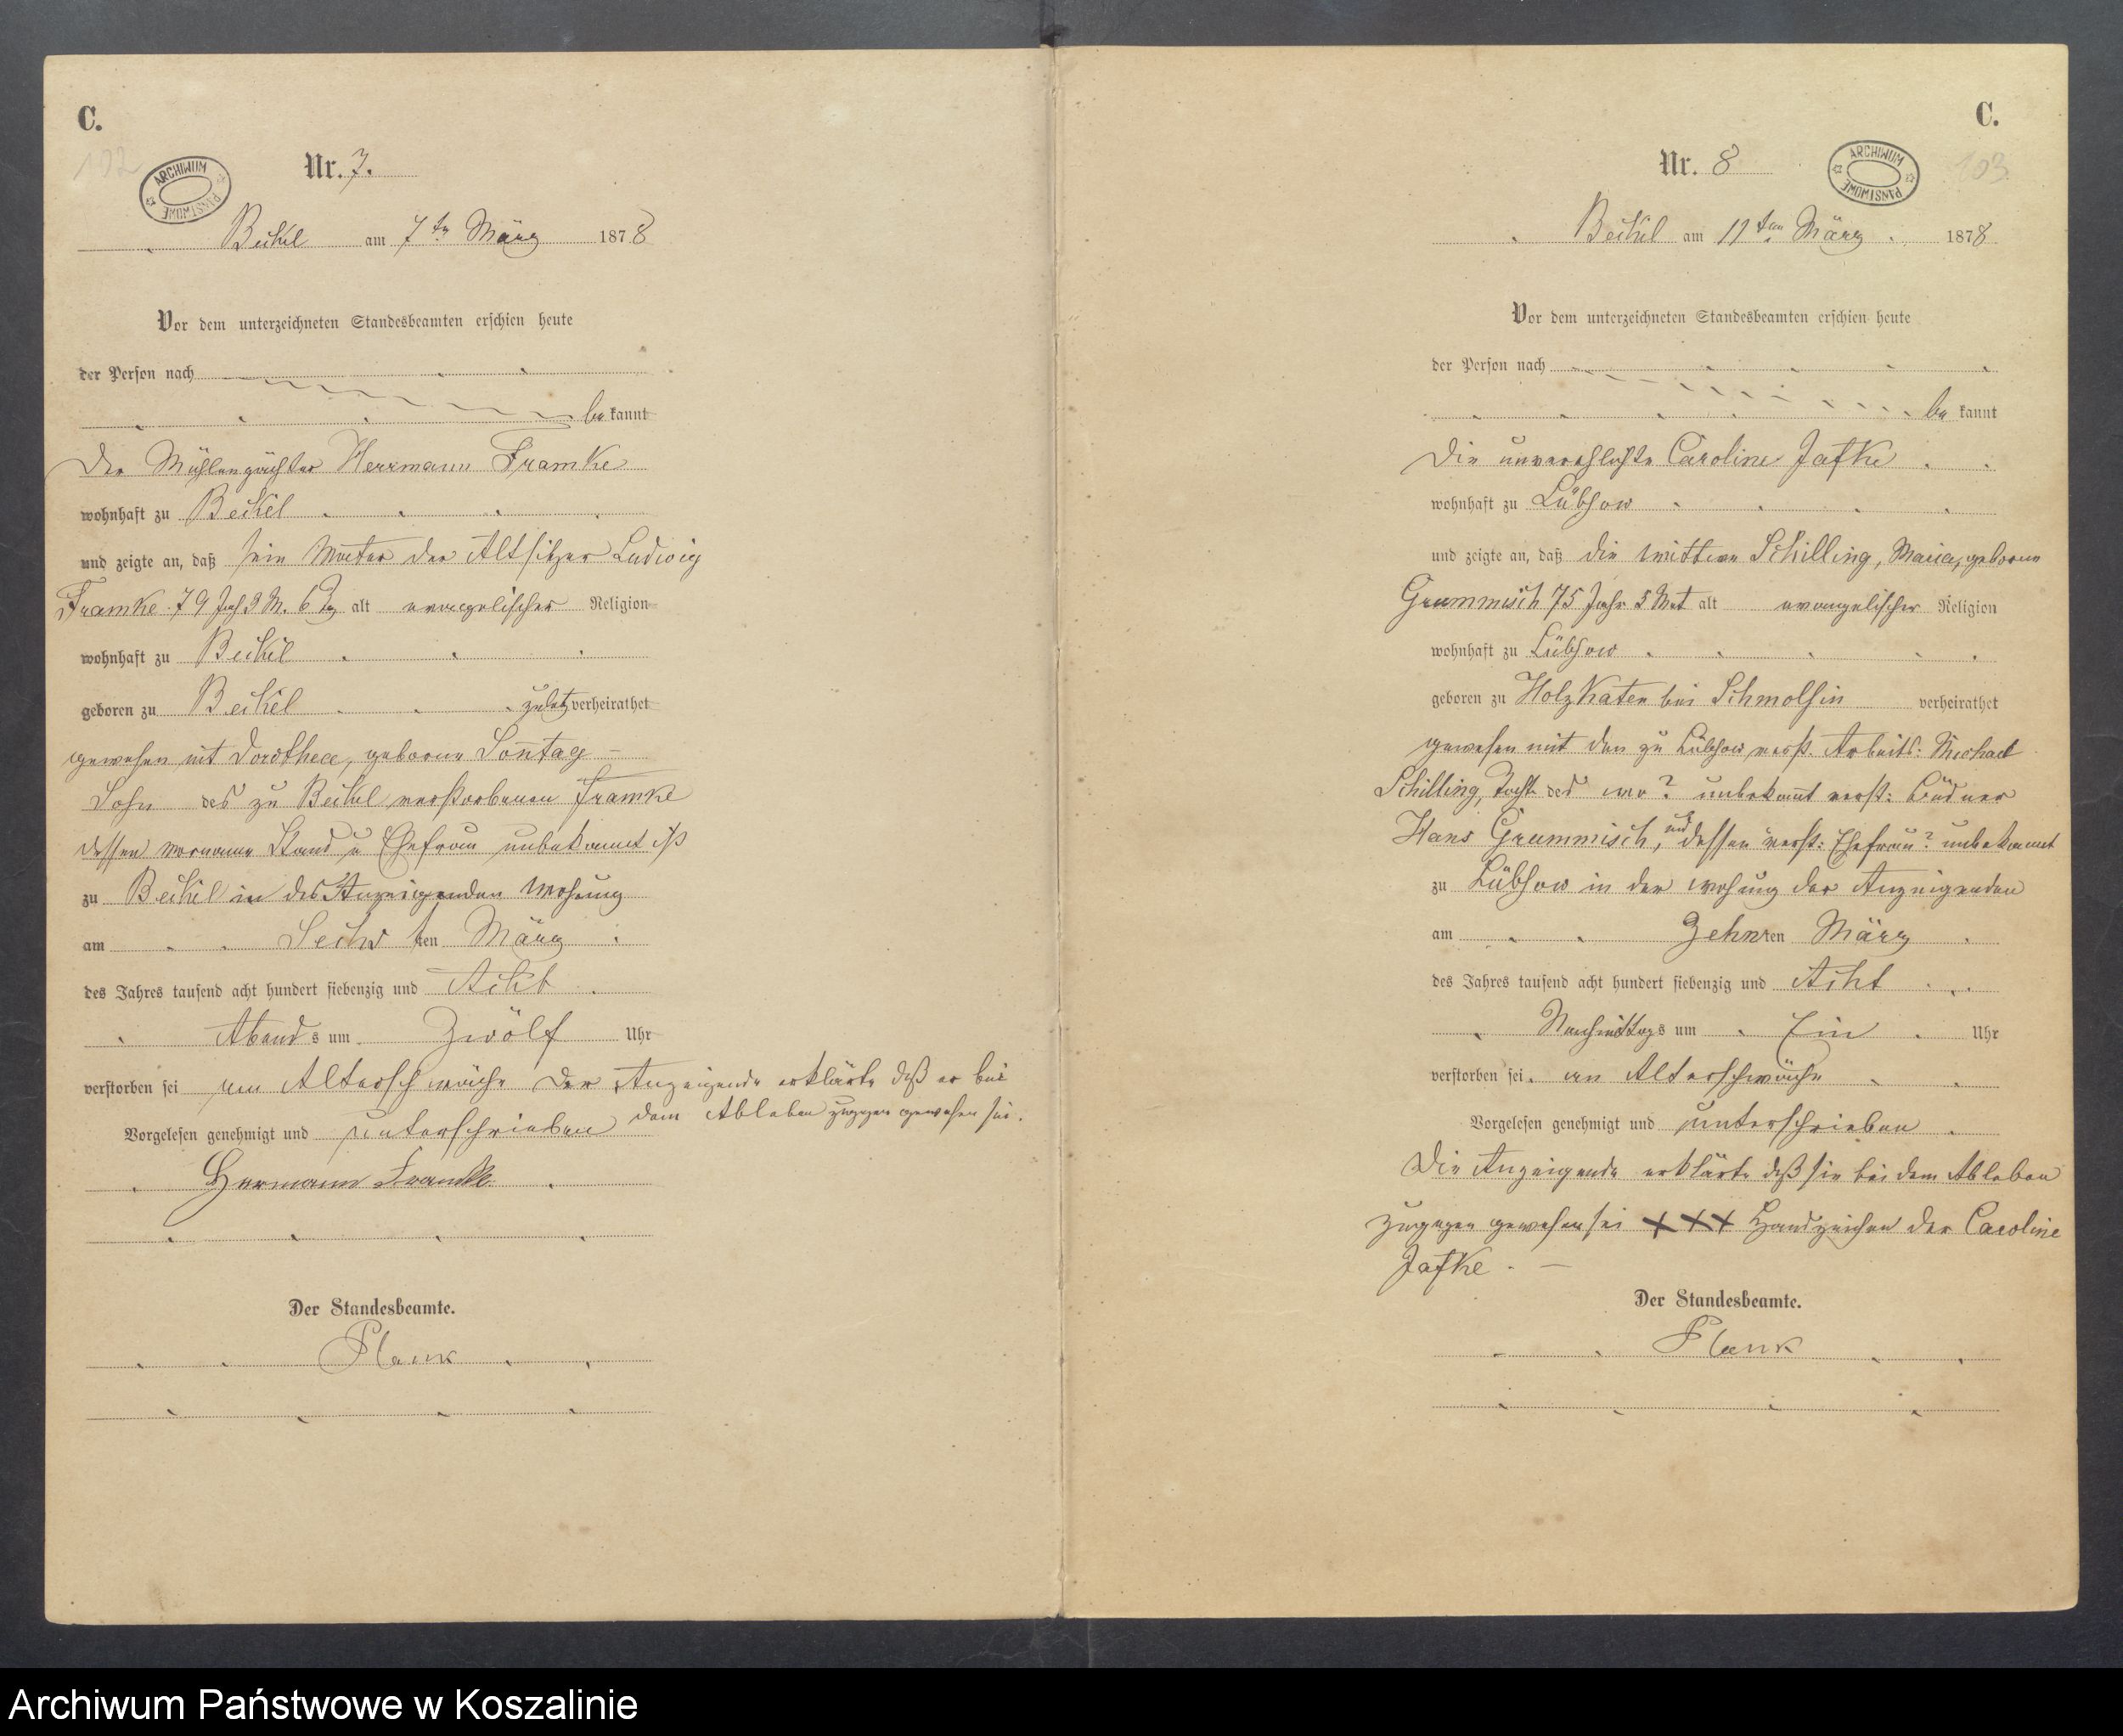 C.
102
ARCHIWUM PAŃSTWOWE
Nr. 7.
Beckel am 7ten März 1878
Vor dem unterzeichneten Standesbeamten erschien heute
der Person nach
be kannt
Der Mühlenpächter Herrmann Framke
wohnhaft zu Beckel
und zeigte an, daß sein Vater der Altsitzer Ludwig
Framke 79 Jah 3 M. 6 Tg alt evangelischer Religion
wohnhaft zu Beckel
geboren zu Beckel zuletz verheirathet
gewesen mit Dorothea, geborne Sontag
Sohn des zu Beckel verstorbenen Framke
dessen vorname Stand u Ehefrau unbekannt ist
zu Beckel in des Anzeigenden Wohung
am Sechs ten März
des Jahres tausend acht hundert siebenzig und Acht
Abend s um Zwölf Uhr
verstorben sei an Altersschwäche Der Anzeigende erklärte daß er bei
dem Ableben zugegen gewesen sei.
Vorgelesen genehmigt und unterschrieben
Hermann Framke
Der Standesbeamte.
Plank
C.
103
ARCHIWUM PAŃSTWOWE
Nr. 8
Beckel am 11ten März 1878
Vor dem unterzeichneten Standesbeamten erschien heute
der Person nach
be kannt
Die unverehlichte Caroline Jafke
wohnhaft zu Lübsow
und zeigte an, daß die Wittwe Schilling, Maria, geborne
Grummisch 75 Jahr 5 Mnt alt evangelischer Religion
wohnhaft zu Lübsow
geboren zu Holzkaten bei Schmolsin verheirathet
gewesen mit den zu Lübsow verst. Arbeits: Michael
Schilling, Tocht des wo? unbekannt verst: Büdner
Hans Grummisch, und dessen verst: Ehefrau? unbekannt
zu Lübsow in der wohung der Anzeigenden
am Zehn ten März
des Jahres tausend acht hundert siebenzig und Acht
Nachmittags um Ein Uhr
verstorben sei an Altersschwäche
Vorgelesen genehmigt und unterschrieben
Die Anzeigende erklärte daß sie bei dem Ableben
zugegen gewesen sei +++ Handzeichen der Caroline
Jafke
Der Standesbeamte.
Plank
Archiwum Państwowe w Koszalinie